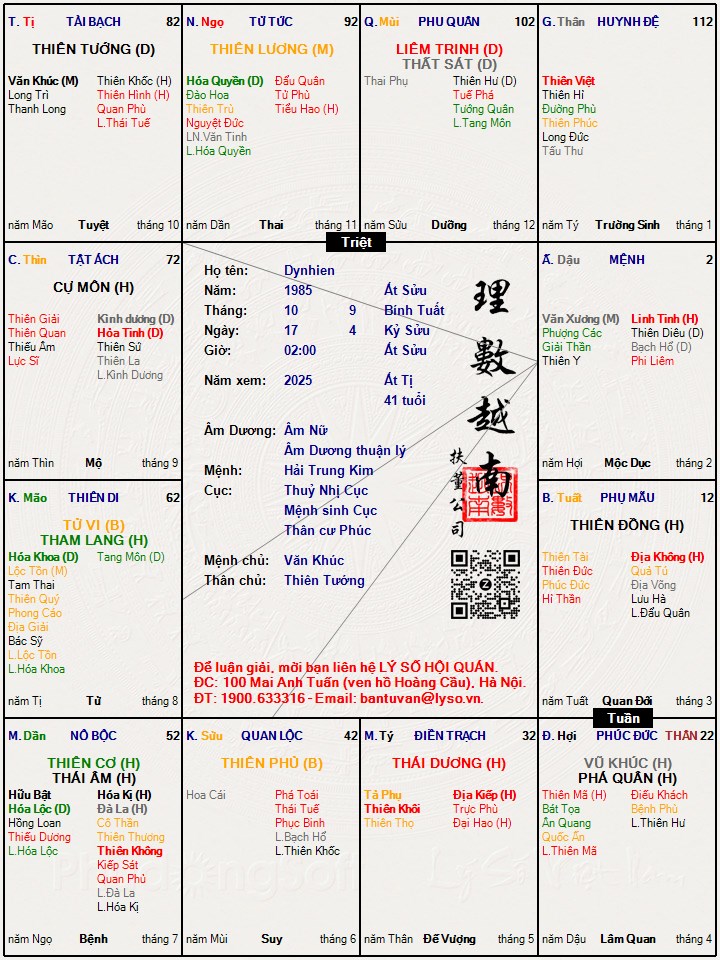 T. Tị TÀI BẠCH 82
THIÊN TƯỚNG (D)
Văn Khúc (M) Thiên Khốc (H)
Long Trì Thiên Hình (H)
Thanh Long Quan Phù
L.Thái Tuế
năm Mão Tuyệt tháng 10
N. Ngọ TỬ TỨC 92
THIÊN LƯƠNG (M)
Hóa Quyền (D) Đẩu Quân
Đào Hoa Tử Phù
Thiên Trù Tiểu Hao (H)
Nguyệt Đức
LN.Văn Tinh
L.Hóa Quyền
năm Dần Thai tháng 11
Q. Mùi PHU QUÂN 102
LIÊM TRINH (D)
THẤT SÁT (D)
Thai Phụ Thiên Hư (D)
Tuế Phá
Tướng Quân
L.Tang Môn
năm Sửu Dưỡng tháng 12
G. Thân HUYNH ĐỆ 112
Thiên Việt
Thiên Hỉ
Đường Phù
Thiên Phúc
Long Đức
Tấu Thư
năm Tý Trường Sinh tháng 1
Triệt
C. Thìn TẬT ÁCH 72
CỰ MÔN (H)
Thiên Giải Kình dương (D)
Thiên Quan Hỏa Tinh (D)
Thiếu Âm Thiên Sứ
Lực Sĩ Thiên La
L.Kình Dương
năm Thìn Mộ tháng 9
Họ tên: Dynhien
Năm: 1985 Ất Sửu
Tháng: 10 9 Bính Tuất
Ngày: 17 4 Kỷ Sửu
Giờ: 02:00 Ất Sửu
Năm xem: 2025 Ất Tị
41 tuổi
Âm Dương: Âm Nữ
Âm Dương thuận lý
Mệnh: Hải Trung Kim
Cục: Thuỷ Nhị Cục
Mệnh sinh Cục
Thân cư Phúc
Mệnh chủ: Văn Khúc
Thân chủ: Thiên Tướng
理數越南
扶董公司
Để luận giải, mời bạn liên hệ LÝ SỐ HỘI QUÁN.
ĐC: 100 Mai Anh Tuấn (ven hồ Hoàng Cầu), Hà Nội.
ĐT: 1900.633316 - Email: bantuvan@lyso.vn.
Ấ. Dậu MỆNH 2
Văn Xương (M) Linh Tinh (H)
Phượng Các Thiên Diêu (D)
Giải Thần Bạch Hổ (D)
Thiên Y Phi Liêm
năm Hợi Mộc Dục tháng 2
K. Mão THIÊN DI 62
TỬ VI (B)
THAM LANG (H)
Hóa Khoa (D) Tang Môn (D)
Lộc Tồn (M)
Tam Thai
Thiên Quý
Phong Cáo
Địa Giải
Bác Sỹ
L.Lộc Tồn
L.Hóa Khoa
năm Tị Tử tháng 8
B. Tuất PHỤ MẪU 12
THIÊN ĐỒNG (H)
Thiên Tài Địa Không (H)
Thiên Đức Quả Tú
Phúc Đức Địa Võng
Hỉ Thần Lưu Hà
L.Đẩu Quân
năm Tuất Quan Đới tháng 3
Tuần
M. Dần NÔ BỘC 52
THIÊN CƠ (H)
THÁI ÂM (H)
Hữu Bật Hóa Kị (H)
Hóa Lộc (D) Đà La (H)
Hồng Loan Cô Thần
Thiếu Dương Thiên Thương
L.Hóa Lộc Thiên Không
Kiếp Sát
Quan Phủ
L.Đà La
L.Hóa Kị
năm Ngọ Bệnh tháng 7
K. Sửu QUAN LỘC 42
THIÊN PHỦ (B)
Hoa Cái Phá Toái
Thái Tuế
Phục Binh
L.Bạch Hổ
L.Thiên Khốc
năm Mùi Suy tháng 6
M. Tý ĐIỀN TRẠCH 32
THÁI DƯƠNG (H)
Tả Phụ Địa Kiếp (H)
Thiên Khôi Trực Phù
Thiên Thọ Đại Hao (H)
năm Thân Đế Vượng tháng 5
Đ. Hợi PHÚC ĐỨC THÂN 22
VŨ KHÚC (H)
PHÁ QUÂN (H)
Thiên Mã (H) Điếu Khách
Bát Tọa Bệnh Phù
Ân Quang L.Thiên Hư
Quốc Ấn
L.Thiên Mã
năm Dậu Lâm Quan tháng 4